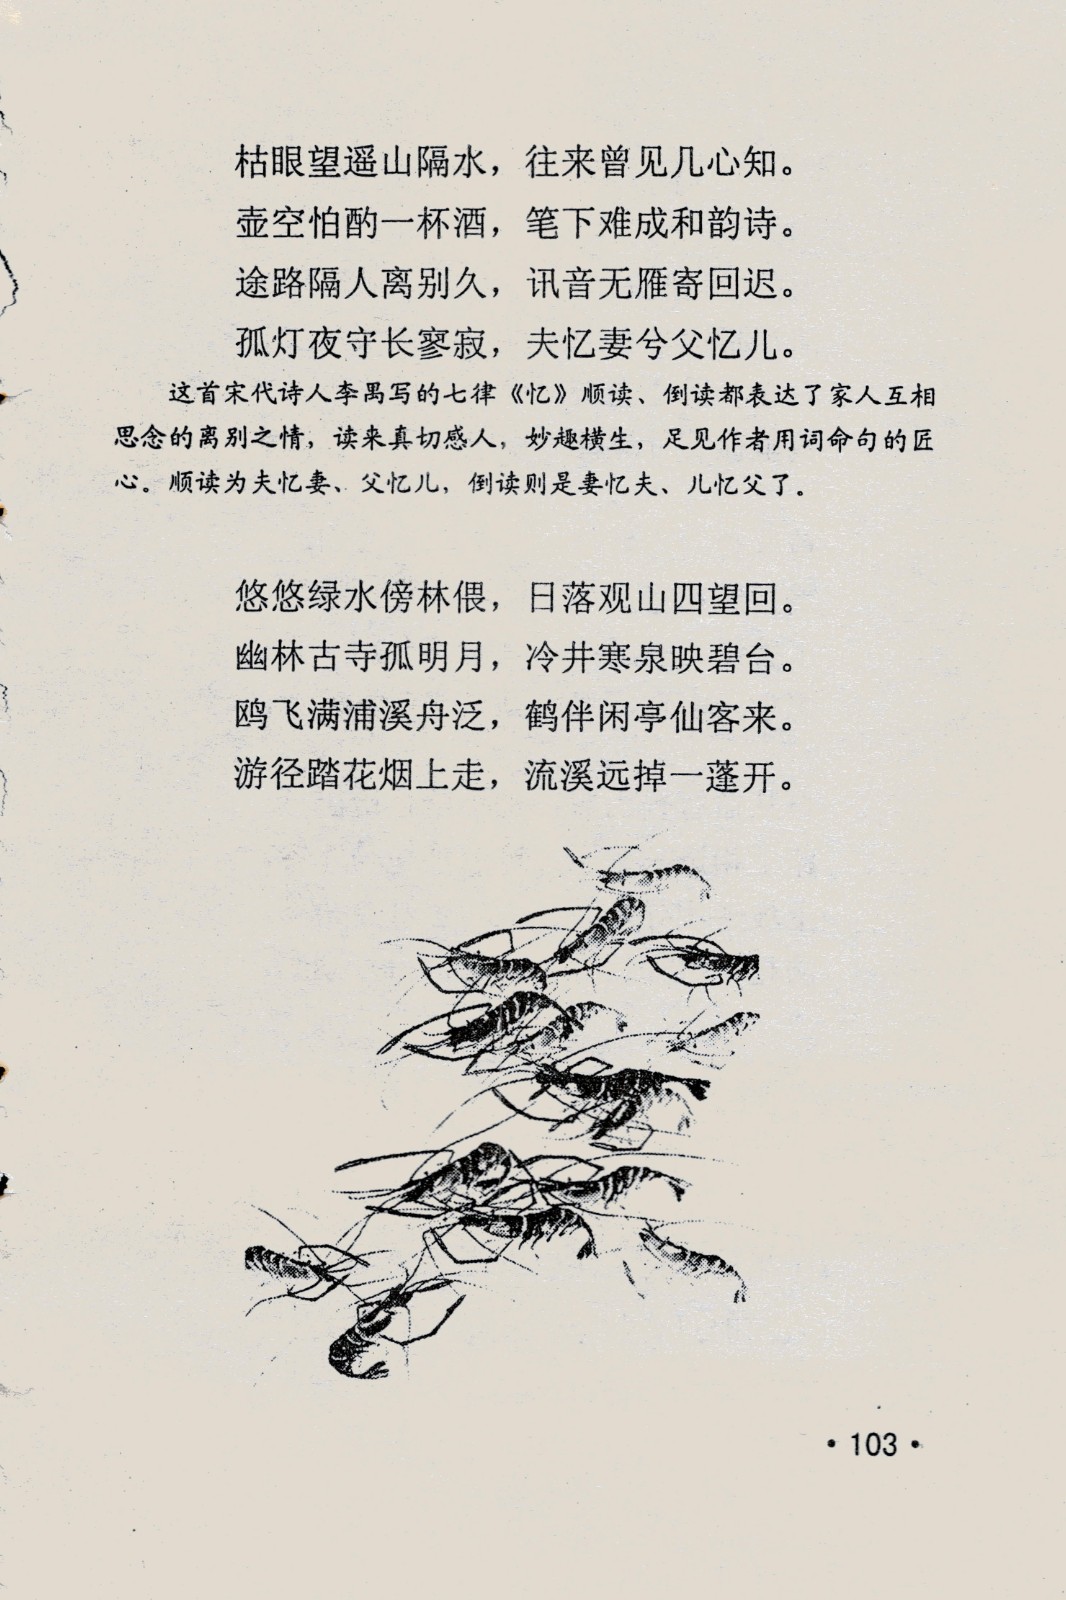 枯眼望遥山隔水，往来曾见几心知。
壶空怕酌一杯酒，笔下难成和韵诗。
途路隔人离别久，讯音无雁寄回迟。
孤灯夜守长寥寂，夫忆妻兮父忆儿。
这首宋代诗人李禺写的七律《忆》顺读、倒读都表达了家人互相
思念的离别之情，读来真切感人，妙趣横生，足见作者用词命句的匠
心。顺读为夫忆妻、父忆儿，倒读则是妻忆夫、儿忆父了。
悠悠绿水傍林偎，日落观山四望回。
幽林古寺孤明月，冷井寒泉映碧台。
鸥飞满浦溪舟泛，鹤伴闲亭仙客来。
游径踏花烟上走，流溪远掉一蓬开。
·103·